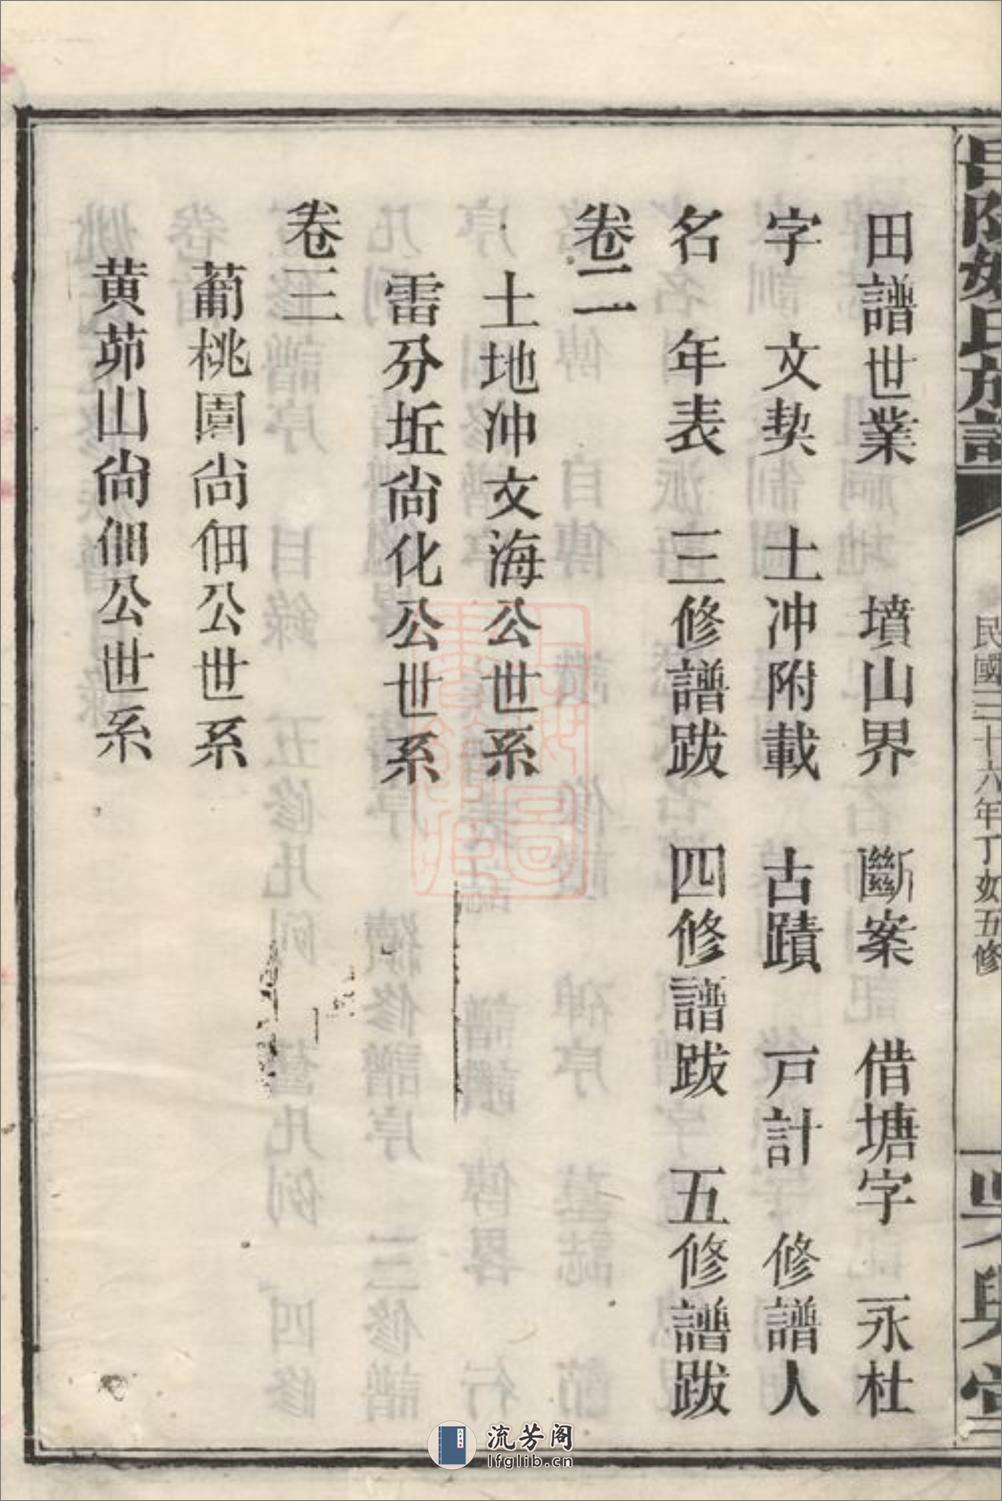 田譜世業 墳山界 斷案 借塘字 永杜
字 文契 土冲附載 古蹟 戸計 修譜人
名 年表 三修譜跋 四修譜跋 五修譜跋
卷二
土地冲文海公世系
雷分坵尙化公世系
卷三
蔔桃園尙佃公世系
黄茆山尙佃公世系
民國三十六年丁亥五修
流芳阁
lfglib.cn